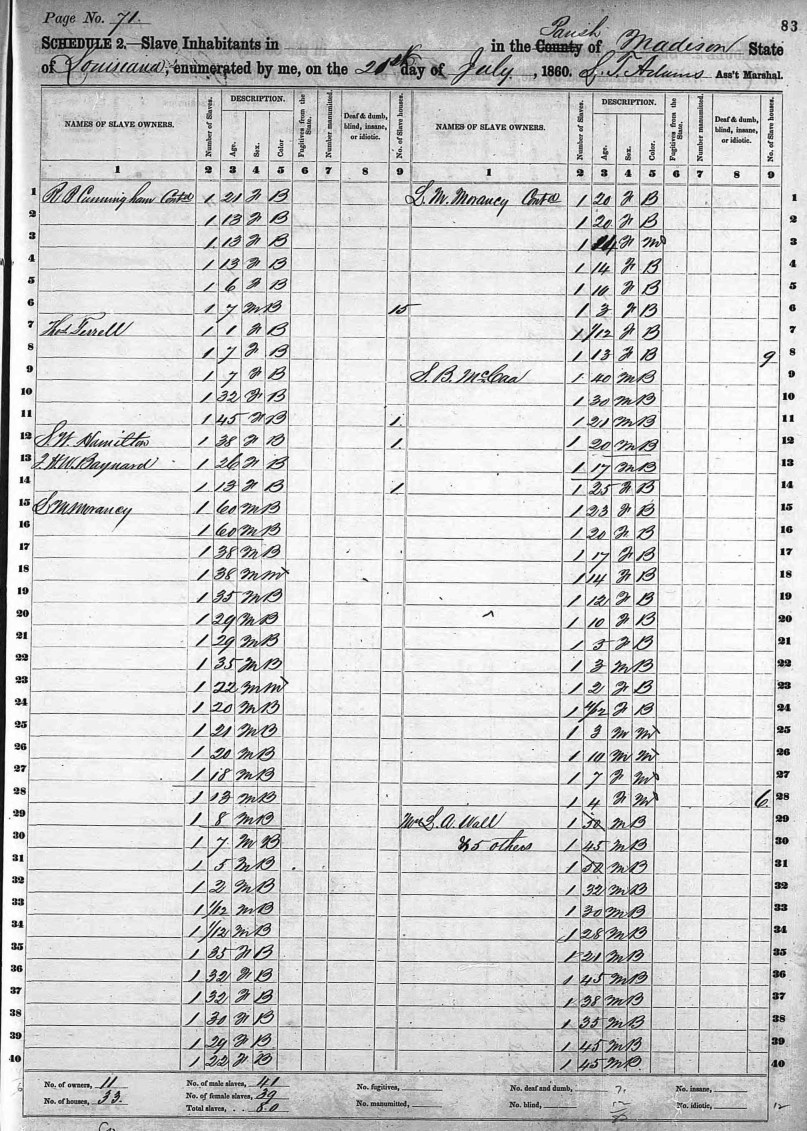 Page No. 71.
83
SCHEDULE 2.—Slave Inhabitants in in the County Parish of Madison State
of Louisiana, enumerated by me, on the 20th day of July, 1860. S. T. Adams Ass't Marshal.
NAMES OF SLAVE OWNERS. Number of Slaves. DESCRIPTION. Age. Sex. Color Fugitives from the State. Number manumitted. Deaf & dumb, blind, insane, or idiotic. No. of Slave houses. NAMES OF SLAVE OWNERS. Number of Slaves. DESCRIPTION. Age. Sex. Color. Fugitives from the State. Number manumitted. Deaf & dumb, blind, insane, or idiotic. No. of Slave houses.
1 2 3 4 5 6 7 8 9 1 2 3 4 5 6 7 8 9
1 R P Cunningham Contd 1 21 F B S. M. Morancy Contd 1 20 F B 1
2 1 13 F B 1 20 F B 2
3 1 13 F B 1 F M 3
4 1 13 F B 1 14 F B 4
5 1 6 F B 1 10 F B 5
6 1 7 M B 15 1 3 F B 6
7 Thos Terrell 1 1 F B 1 1/12 F B 7
8 1 7 F B 1 13 F B 9 8
9 1 7 F B S. B. McCaa 1 40 M B 9
10 1 32 F B 1 30 M B 10
11 1 45 F B 1 1 21 M B 11
12 S. W. Hamilton 1 38 F B 1 1 20 M B 12
13 J. H. W. Baynard 1 26 F B 1 17 M B 13
14 1 13 F B 1 1 25 F B 14
15 S. M Morancy 1 60 M B 1 23 F B 15
16 1 60 M B 1 20 F B 16
17 1 38 M B 1 17 F B 17
18 1 38 M M 1 14 F B 18
19 1 35 M B 1 12 F B 19
20 1 29 M B 1 10 F B 20
21 1 29 M B 1 5 F B 21
22 1 35 M B 1 3 M B 22
23 1 22 M M 1 2 F B 23
24 1 20 M B 1 F B 24
25 1 21 M B 1 3 M M 25
26 1 20 M B 1 10 M M 26
27 1 18 M B 1 7 F M 27
28 1 13 M B 1 4 F M 6 28
29 1 8 M B Mrs S. A. Wall 1 50 M B 29
30 1 7 M B & 5 others 1 45 M B 30
31 1 5 M B 1 50 M B 31
32 1 2 M B 1 32 M B 32
33 1 1/12 M B 1 30 M B 33
34 1 1/12 M B 1 28 M B 34
35 1 35 F B 1 21 M B 35
36 1 32 F B 1 45 M B 36
37 1 32 F B 1 38 M B 37
38 1 30 F B 1 35 M B 38
39 1 29 F B 1 45 M B 39
40 1 22 F B 1 45 M B 40
No. of owners, 11 No. of male slaves, 41 No. fugitives, No. deaf and dumb, No. insane,
No. of houses, 33. No. of female slaves, 39 No. manumitted, No. blind, No. idiotic, 12
Total slaves, 80